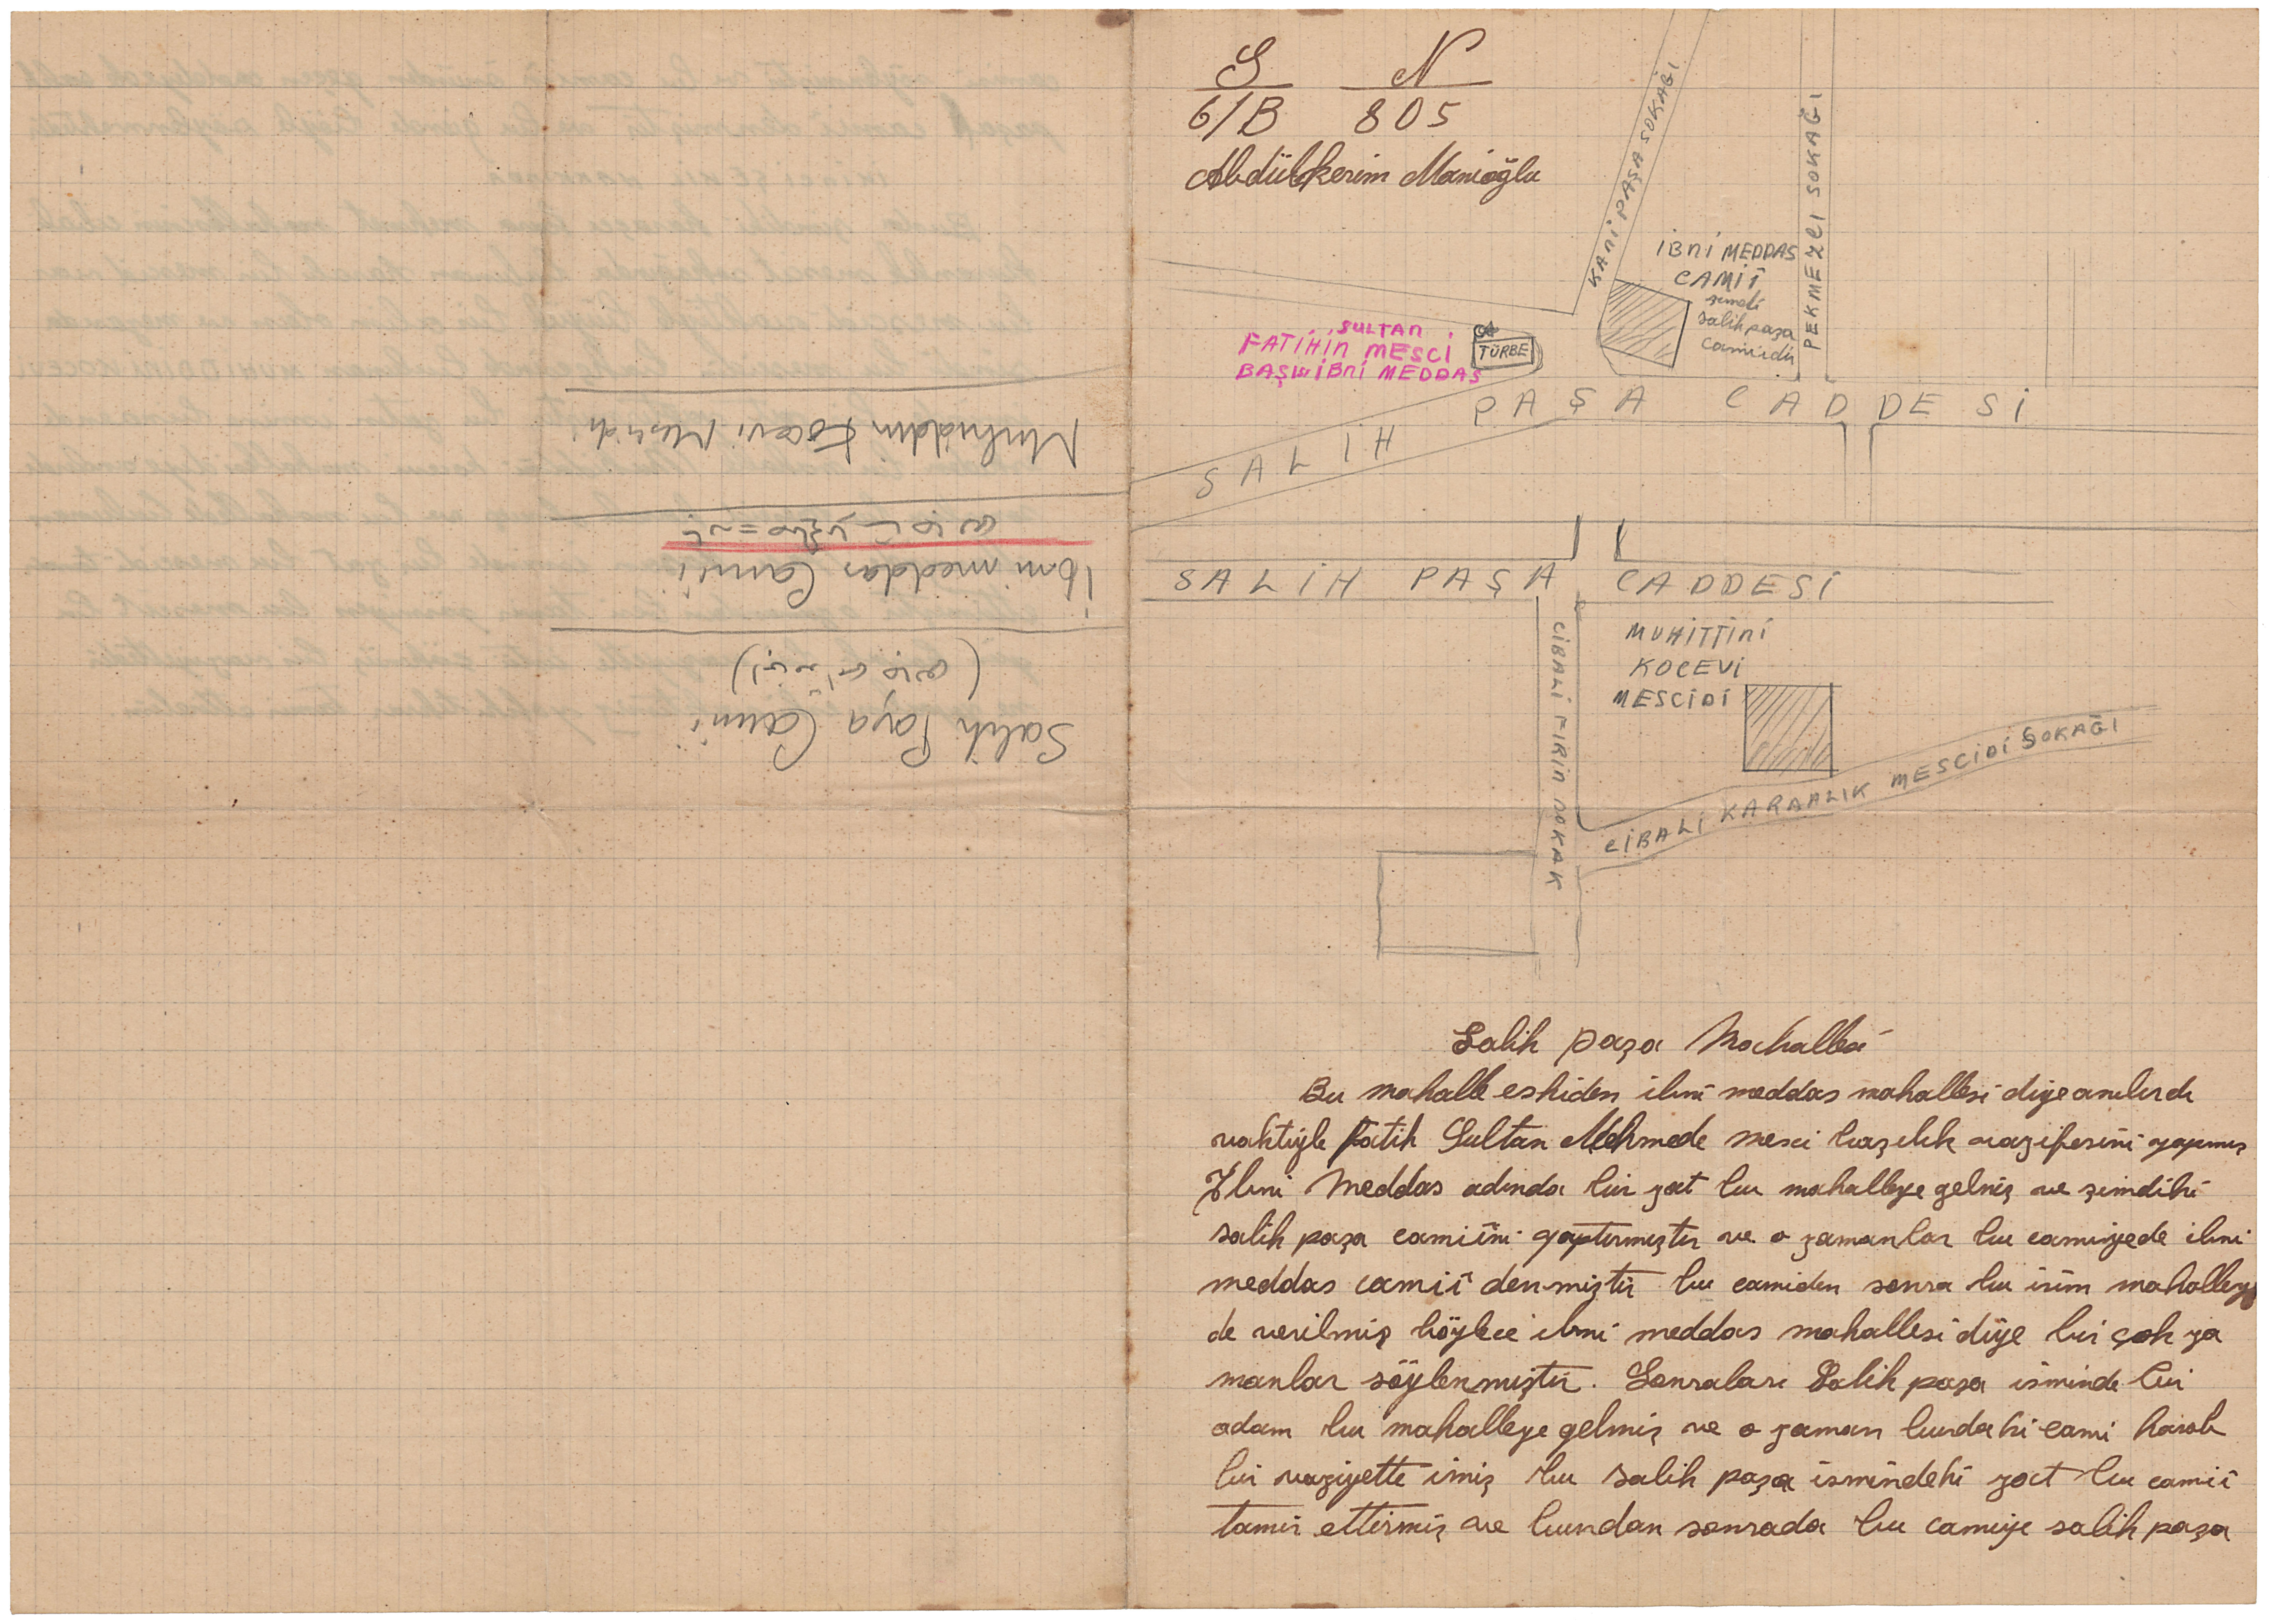 S N
6/B 805
Abdülkerim Manioğlu
KANİ PAŞA SOKAĞI
PEKMEZCI SOKAĞI
İBNİ MEDDAS
CAMİİ
şimdi
salih paşa
camiidir
SULTAN
FATİHİN MESCİ
BAŞISI İBNİ MEDDAS
TÜRBE
SALİH PAŞA CADDESİ
SALİH PAŞA CADDESİ
CİBALİ FIRIN SOKAK
MUHİTTİNİ
KOCEVİ
MESCİDİ
CİBALİ KARAALIK MESCİDİ SOKAĞI
Salih paşa Mahallesi
Bu mahalle eskiden ibni meddas mahallesi diye anılırdı
vaktiyle Fatih Sultan Mehmede mesci başılık vazifesini yapmış
İbni Meddas adında bir zat bu mahalleye gelmiş ve şimdiki
salih paşa camiini yaptırmıştır ve o zamanlar bu camiyede ibni
meddas camii denmiştir bu camiden sonra bu isim mahalleye
de verilmiş böylece ibni meddas mahallesi diye bir çok za
manlar söylenmiştir. Sonraları Salih paşa isminde bir
adam bu mahalleye gelmiş ve o zaman burdaki cami harab
bir vaziyette imiş bu salih paşa ismindeki zat bu camii
tamir ettirmiş ve bundan sonrada bu camiye salih paşa
Salih Paşa Camii
İbni meddas Camii
Muhiddin Kocevi Mescidi